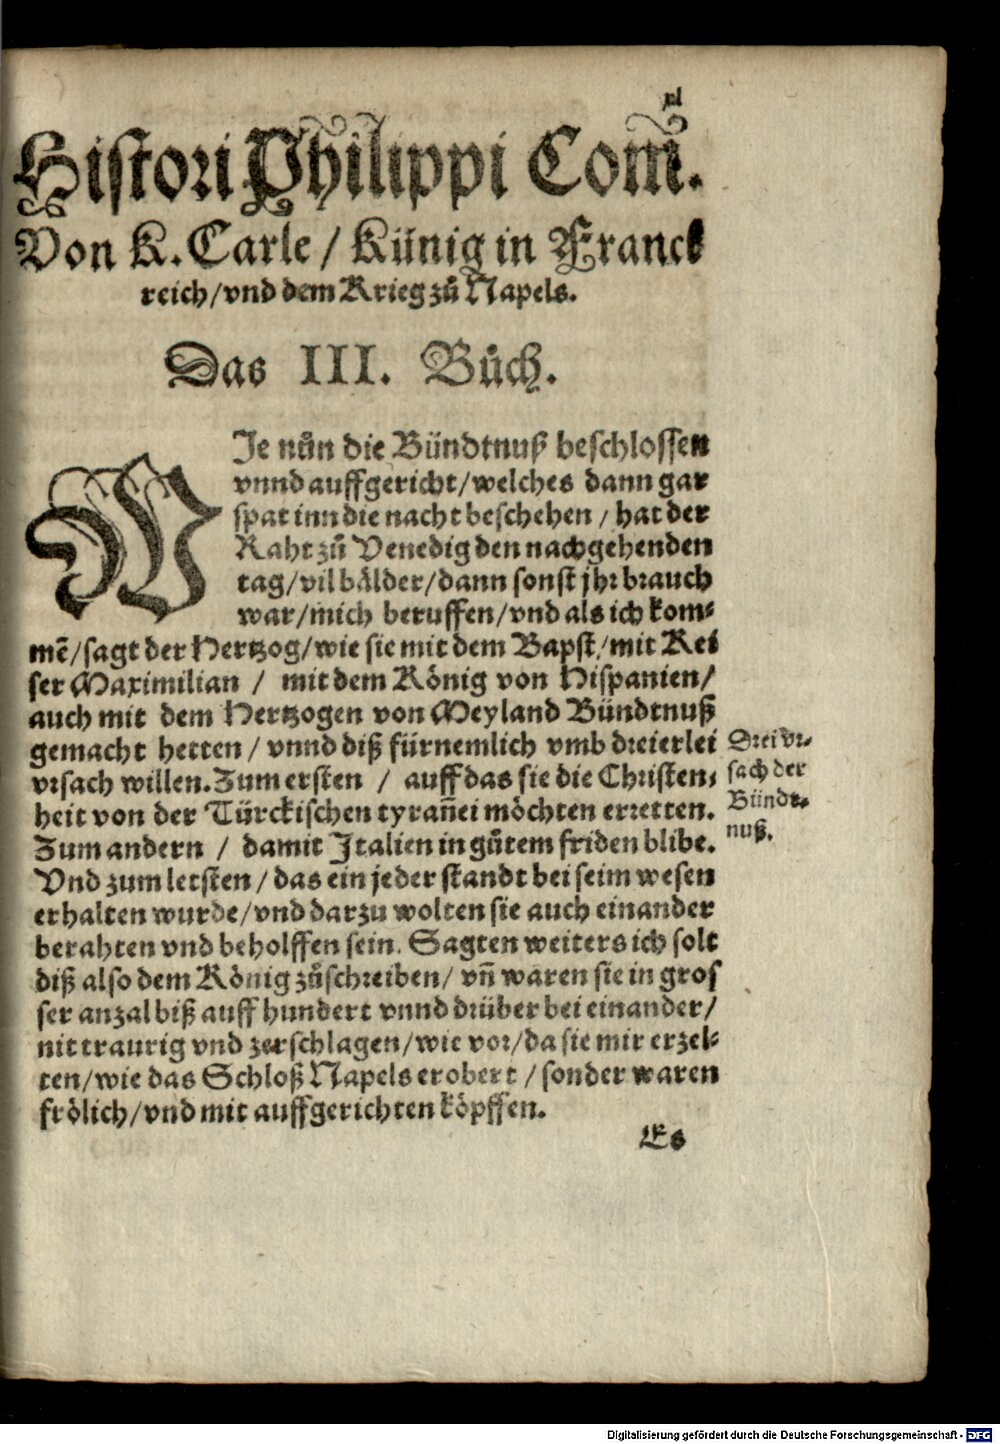 xl
Histori Philippi Com̃.
Von K. Carle / Künig in Franck
reich / vnd dem Krieg zů Napels.
Das III. Bůch.
WJe nůn die Bündtnuß beschlossen
vnnd auffgericht / welches dann gar
spat inn die nacht beschehen / hat der
Raht zů Venedig den nachgehenden
tag / vil bälder / dann sonst jhr brauch
war / mich beruffen / vnd als ich kom⸗
mẽ / sagt der Hertzog / wie sie mit dem Bapst / mit Kei
ser Maximilian / mit dem König von Hispanien /
auch mit dem Hertzogen von Meyland Bündtnuß
gemacht hetten / vnnd diß fürnemlich vmb dreierlei
vrsach willen. Zum ersten / auff das sie die Christen⸗
heit von der Türckischen tyrañei möchten erretten.
Zum andern / damit Jtalien in gůtem friden blibe.
Vnd zum letsten / das ein jeder standt bei seim wesen
erhalten wurde / vnd darzu wolten sie auch einander
berahten vnd beholffen sein. Sagten weiters ich solt
diß also dem König zůschreiben / vñ waren sie in gros
ser anzal biß auff hundert vnnd drüber bei einander /
nit traurig vnd zerschlagen / wie vor / da sie mir erzel⸗
ten / wie das Schloß Napels erobert / sonder waren
frölich / vnd mit auffgerichten köpffen.
Es
Drei vr⸗
sach der
Bündt⸗
nuß.
Digitalisierung gefördert durch die Deutsche Forschungsgemeinschaft - DFG